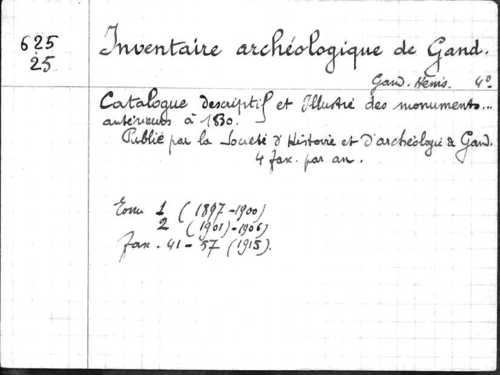 625
25
Inventaire archéologique de Gand.
Gand. Heins. 4°
Catalogue descriptif et illustré des monuments...
antérieurs à 1830.
Publié par la Société d'Histoire et d'archéologie de Gand.
4 fasc. par an.
Tome 1 (1897-1900)
2 (1901)-1906)
Fasc. 41-57 (1915).